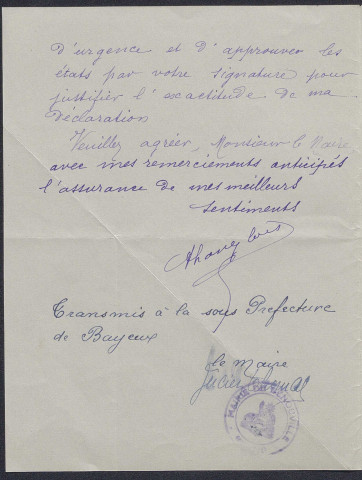 d'urgence et d'approuver les
états par votre signature pour
justifier l'exactitude de ma
déclaration
Veuillez agréer, Monsieur le Maire
avec mes remerciements anticipés
l'assurance de mes meilleurs
sentiments
Transmis à la sous Préfecture
de Bayeux
le Maire
MAIRIE